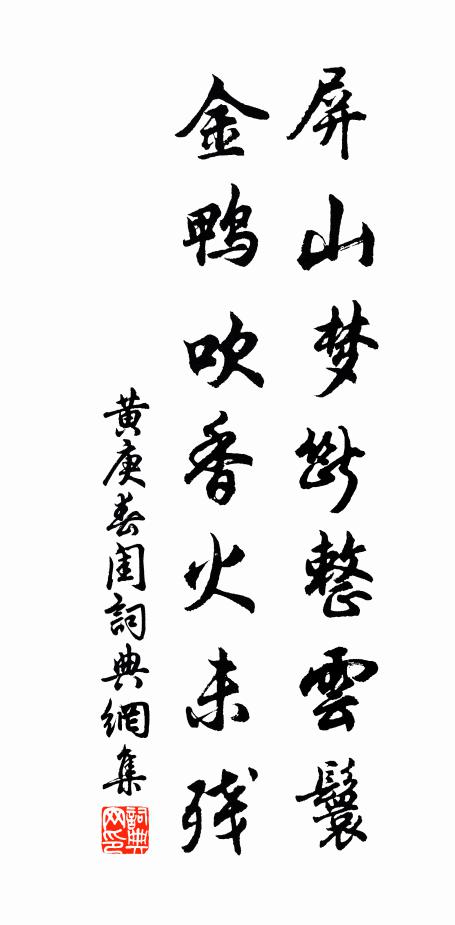 屏山梦断整雲鬟
金鴨吹香火未残
黄庚春閨詞典網集
詞典网印